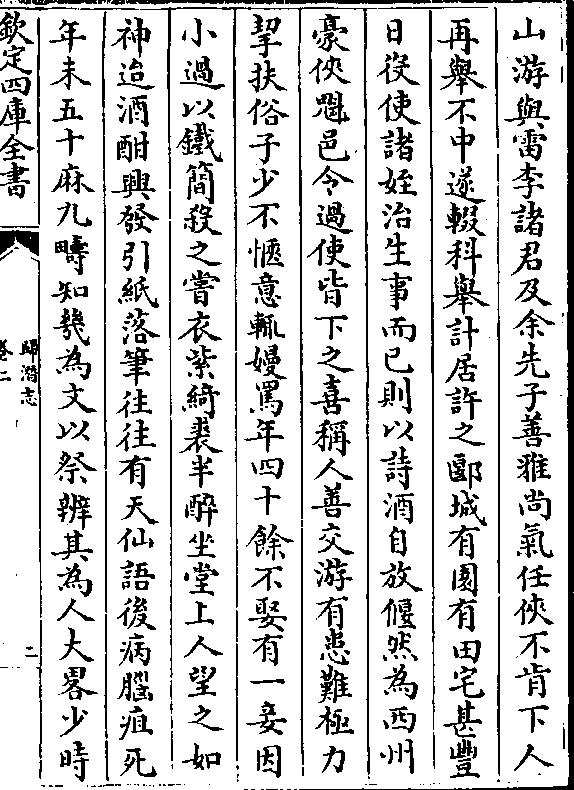 山游與雷李諸君及余先子善雅尚氣任俠不肯下人
再舉不中遂輟科舉計居許之郾城有園有田宅甚豐
日役使諸姪治生事而已則以詩酒自放偃然為西州
豪俠魁邑令過使皆下之喜稱人善交游有患難極力
挈扶俗子少不愜意輒嫚罵年四十餘不娶有一妾因
小過以鐵簡殺之嘗衣紫綺裘半醉坐堂上人望之如
神迨酒酣興發引紙落筆往往有天仙語後病腦疽死
年未五十麻九疇知幾為文以祭辨其為人大畧少時
欽定四庫全書
歸潛志
卷二
二